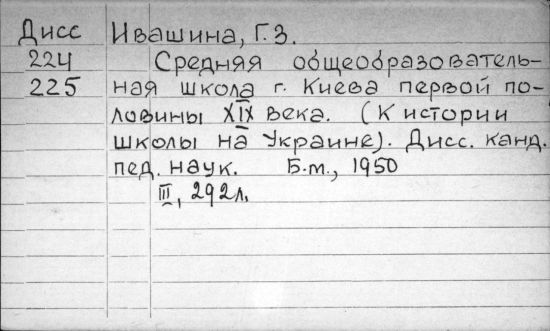 Дисс Ивашина, Г.З.
224 Средняя общеобразователь-
225 ная школа г. Киева первой по-
ловины XIX века. (К истории
школы на Украине). Дисс. канд.
пед. наук. Б.м., 1950
III, 292л.